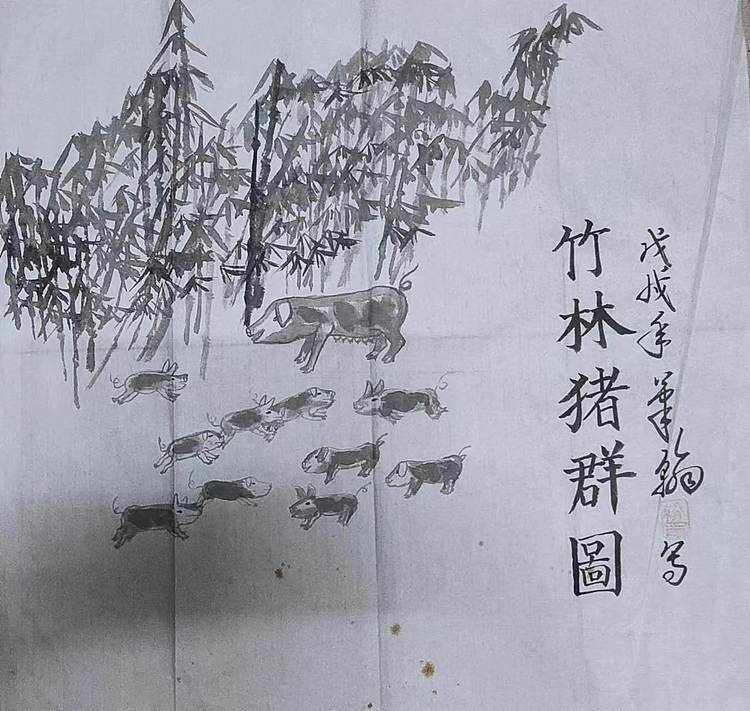 竹林猪群圖
戊戌年翰写